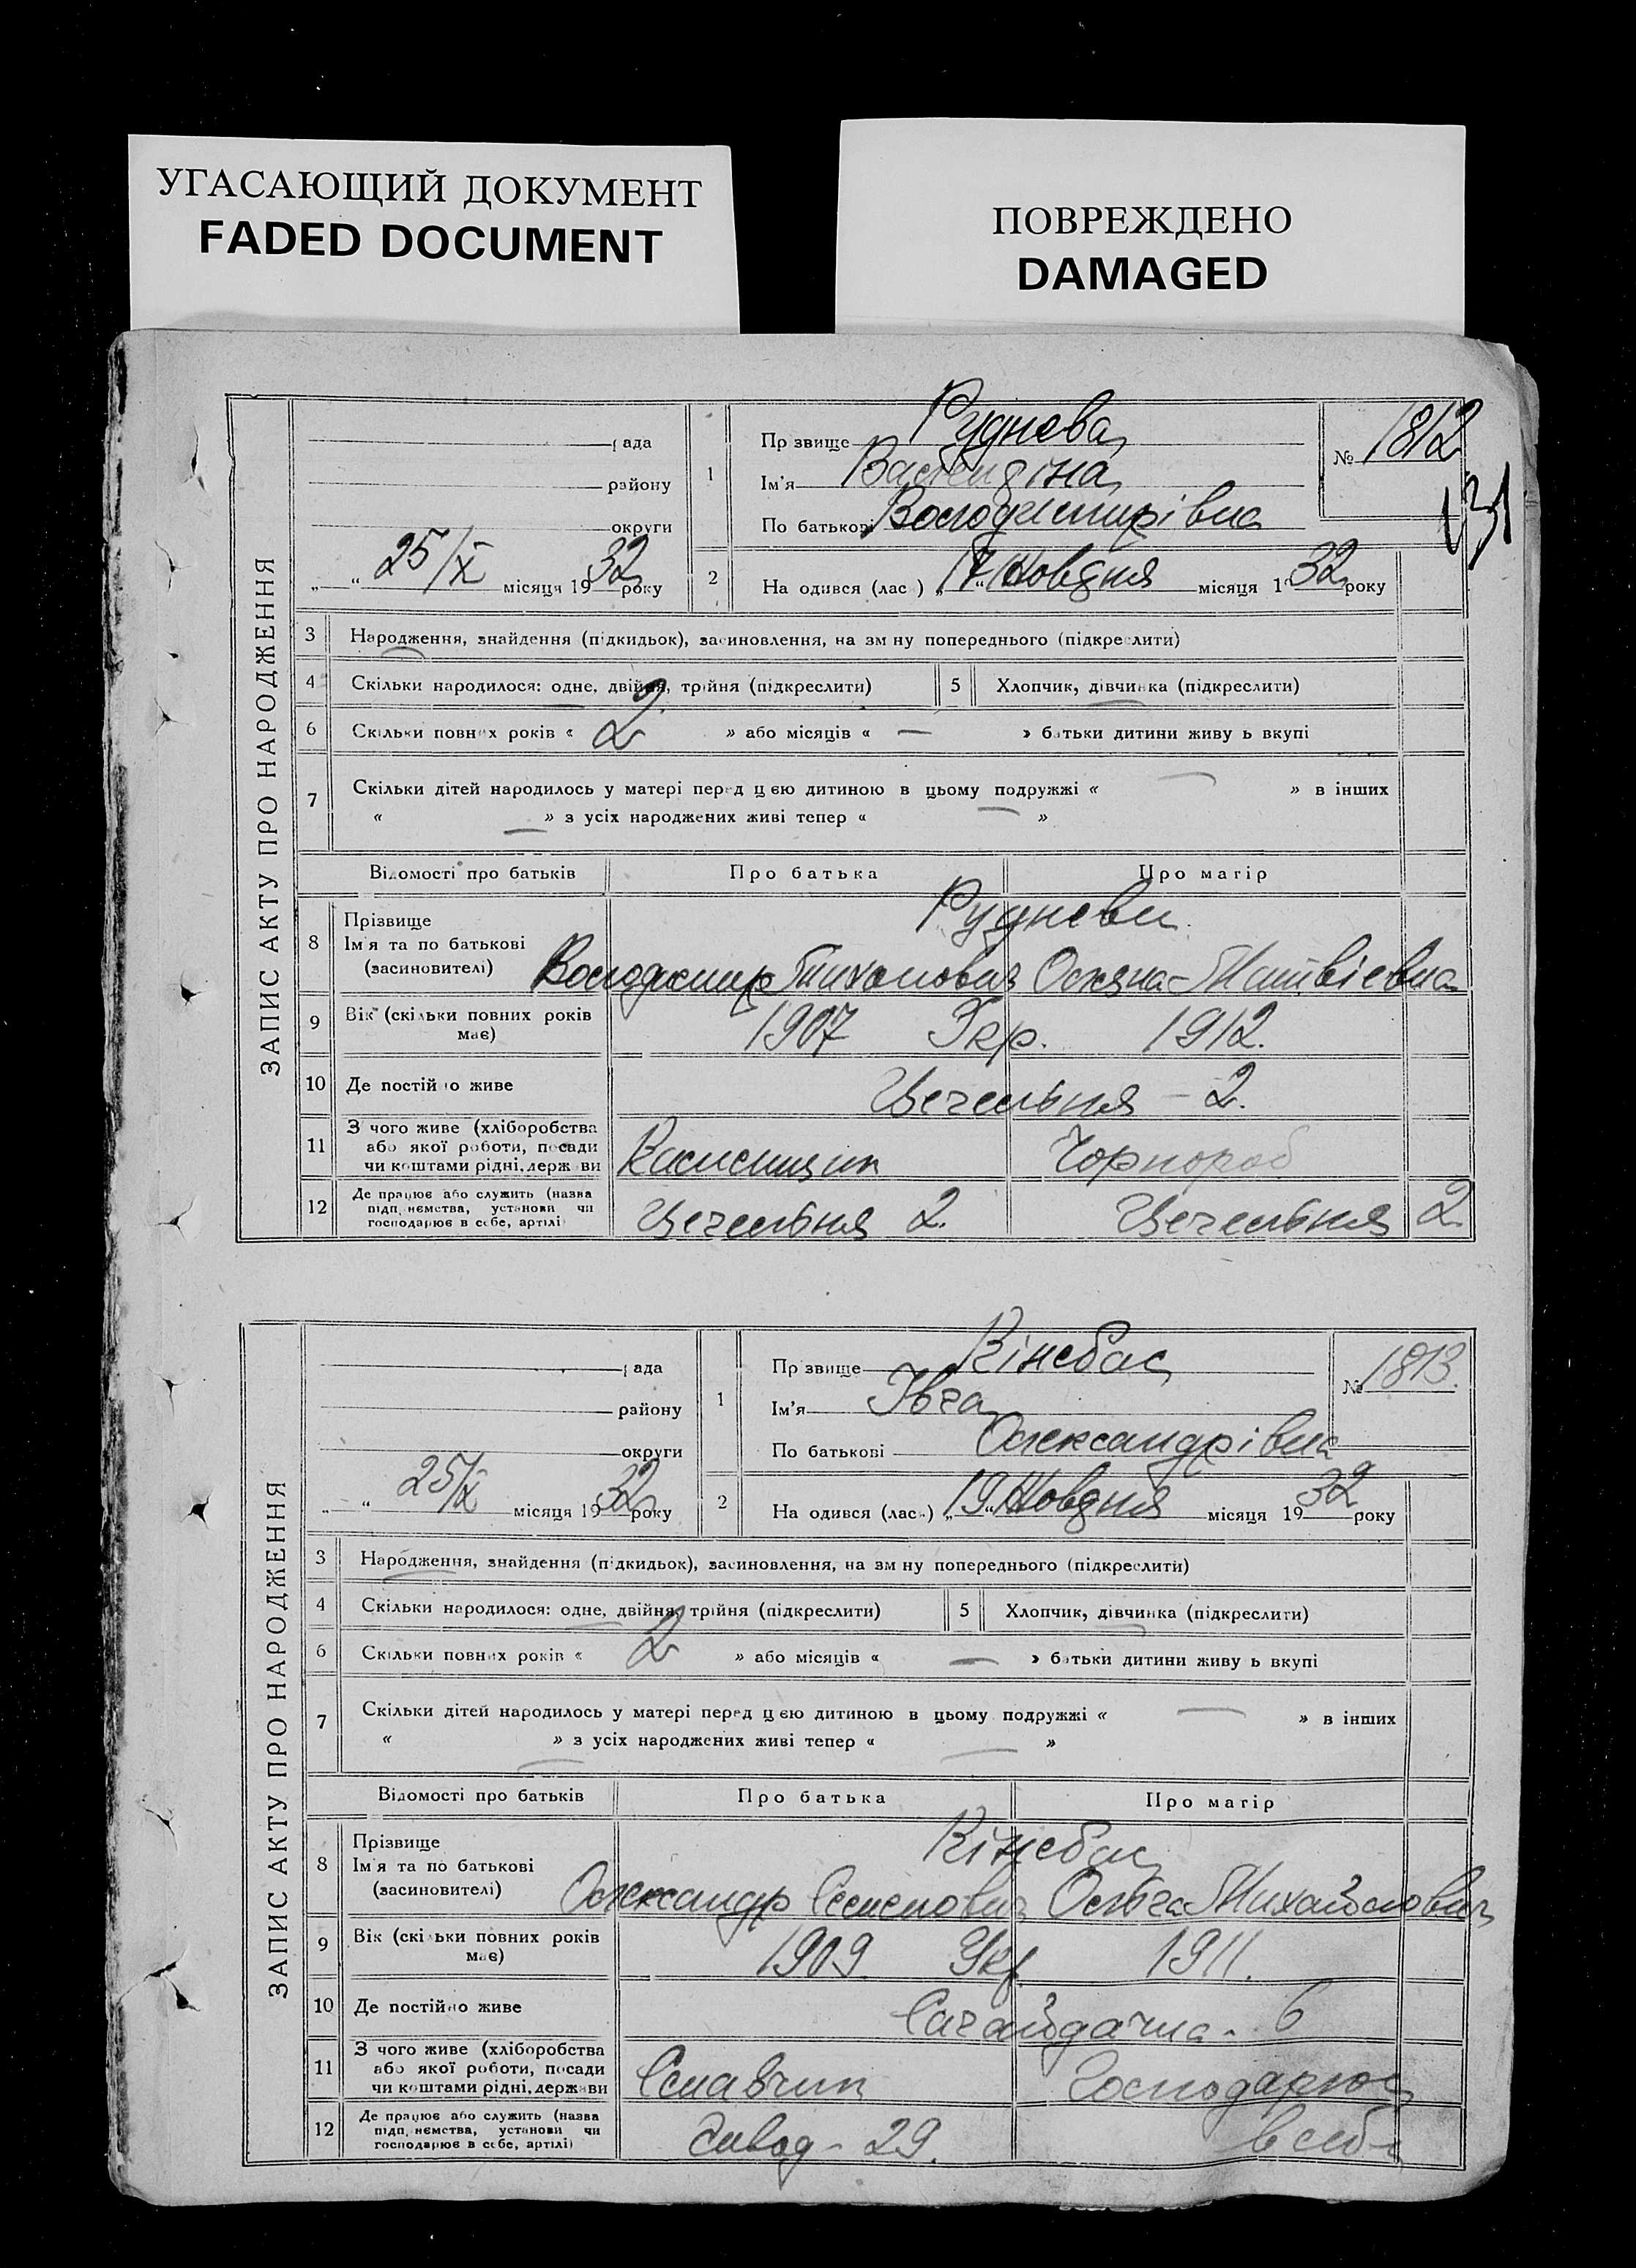 УГАСАЮЩИЙ ДОКУМЕНТ
FADED DOCUMENT
ПОВРЕЖДЕНО
DAMAGED
ЗАПИС АКТУ ПРО НАРОДЖЕННЯ
рада
району
округи
„ “ 25/X місяця 1932 року
1
Прзвище Руднєва
Ім'я
По батькові Володимирівна
№ 1812
131
2 На одився (лас ) „17“ Жовдня місяця 1 32 року
3 Народження, знайдення (підкидьок), засиновлення, на зм ну попереднього (підкреслити)
4 Скільки народилося: одне, двійня, трійня (підкреслити) 5 Хлопчик, дівчинка (підкреслити)
6 Скільки повних років « 2 » або місяців « — » батьки дитини живу ь вкупі
7 Скільки дітей народилось у матері перед цєю дитиною в цьому подружжі « — » в інших
« — » з усіх народжених живі тепер « — »
Відомості про батьків Про батька Про матір
8 Прізвище Рудневи
Ім'я та по батькові
(засиновителі) Володимир Тихонович Оксана Матвіевна
9 Вік (скільки повних років має) 1907 Укр. 1912.
10 Де постій о живе Цегельня - 2.
11 З чого живе (хліборобства
або якої роботи, посади
чи коштами рідні, держ ви Чорнороб
12 Де працює або служить (назва
підп,иємства, установи чи
господарює в себе, артілі Цегельня 2. Цегельня 2
ЗАПИС АКТУ ПРО НАРОДЖЕННЯ
рада
району
округи
„ “ 25/X місяця 1932 року
1
Прзвище Кінебас
Ім'я Івга
По батькові Олександрівна
№ 1813.
2 На одився (лас ) „19“ Жовдня місяця 1932 року
3 Народження, знайдення (підкидьок), засиновлення, на зм ну попереднього (підкреслити)
4 Скільки народилося: одне, двійня, трійня (підкреслити) 5 Хлопчик, дівчинка (підкреслити)
6 Скільки повних років « 2 » або місяців « — » батьки дитини живу ь вкупі
7 Скільки дітей народилось у матері перед цєю дитиною в цьому подружжі « — » в інших
« — » з усіх народжених живі тепер « — »
Відомості про батьків Про батька Про матір
8 Прізвище Кінебас
Ім'я та по батькові
(засиновителі) Олександр Семенович Ольга Михайловна
9 Вік (скільки повних років має) 1909. Укр. 1911.
10 Де постійно живе Сагайдачна - 6
11 З чого живе (хліборобства
або якої роботи, посади
чи коштами рідні, держави Господарює
12 Де працює або служить (назва
підп,иємства, установи чи
господарює в себе, артілі) Завод - 29. в себе